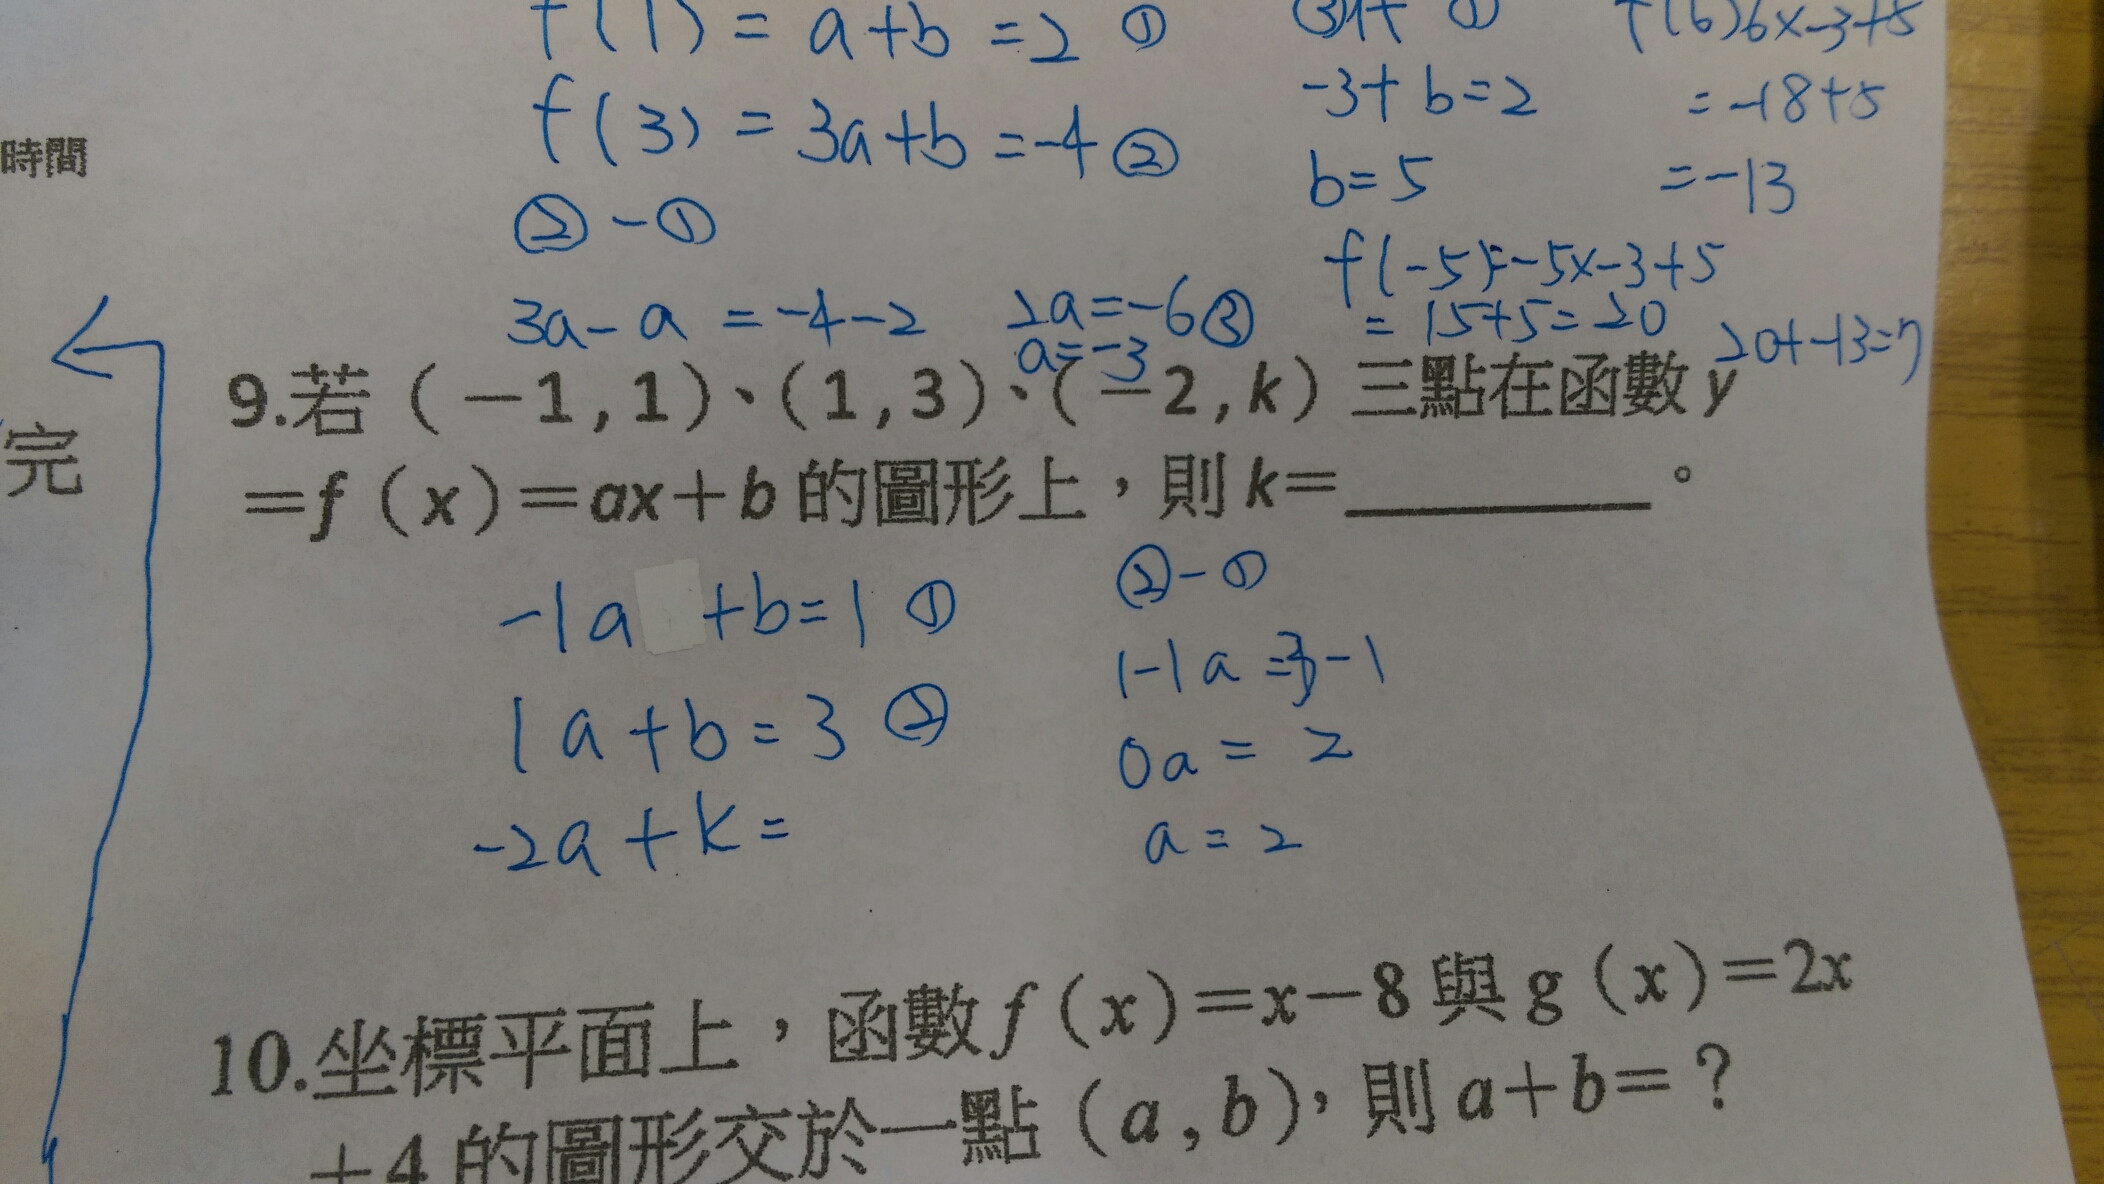 f(1) = a+b = 2 ①
f(3) = 3a+b = -4 ②
② - ①
3a - a = -4 - 2
2a = -6 ③
a = -3
-3 + b = 2
b = 5
f(6) 6x-3+5
= -18+5
= -13
f(-5) = -5x-3+5
= 15+5 = 20
20+-13=7
時間
完
9.若（－1,1）、（1,3）、（－2,k）三點在函數 y
＝f（x）＝ax＋b 的圖形上，則 k＝________。
-1a +b=1 ①
1a+b=3 ②
-2a+k=
②-①
1-1a=3-1
0a = 2
a = 2
10.坐標平面上，函數 f（x）＝x－8 與 g（x）＝2x
＋4 的圖形交於一點（a,b），則 a＋b＝？